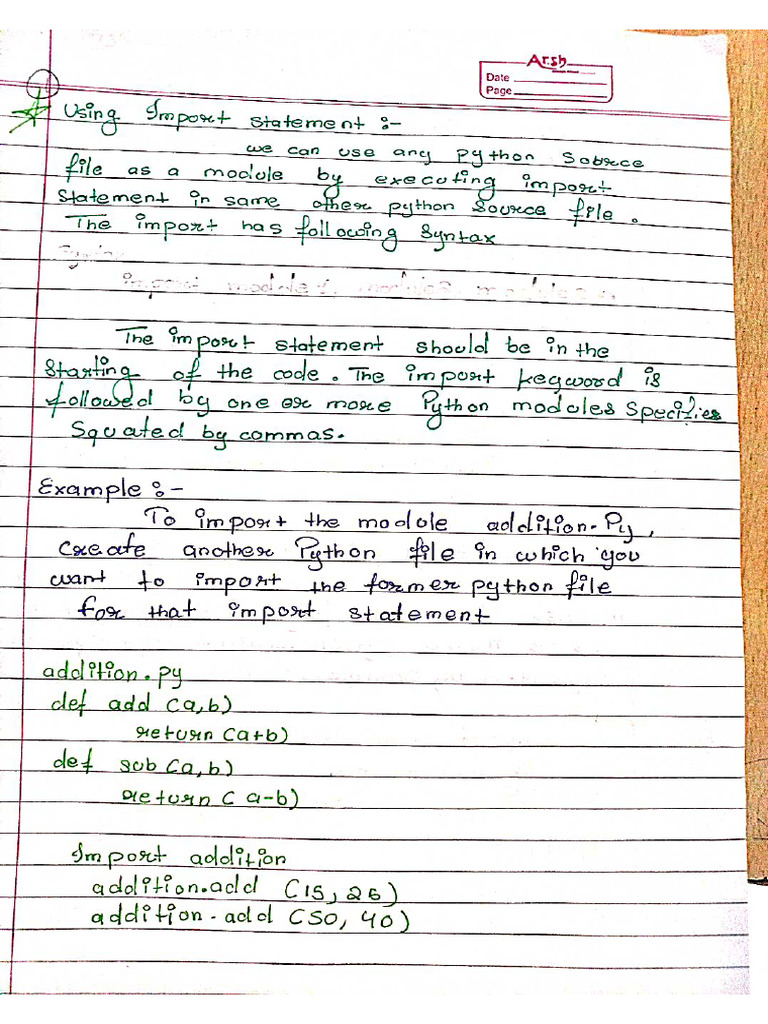 Arsh
Date
Page
Using Import statement :-
we can use any python Sobrce
file as a module by executing import
Statement in same other python Source file.
The import has following Syntax
import module1, module2, module
The import statement should be in the
Starting of the code. The import keyword is
followed by one or more Python modules Specifies
Squated by commas.
Example :-
To import the module addition.Py,
create another Python file in which you
want to import the former python file
for that import statement
addition.py
def add (a,b)
return (a+b)
def sub (a,b)
return ( a-b)
Import addition
addition.add (15, 26)
addition.add (50, 40)